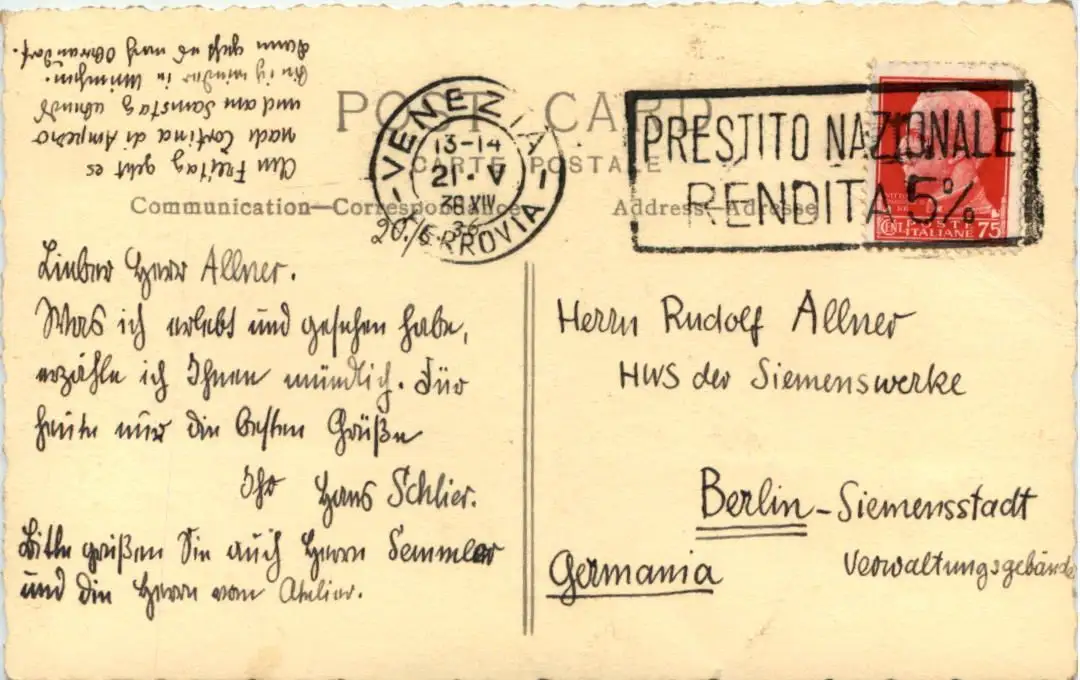 POST CARD
CARTE POSTALE
Communication—Correspondance
Address—Adresse
VENEZIA
13-14
21. V
XIV
FERROVIA
PRESTITO NAZIONALE
RENDITA 5%
POSTE
ITALIANE
CENT. 75
20./5. 36
Lieber Herr Allner.
Was ich erlebt und gesehen habe,
erzähle ich Ihnen mündlich. Für
heute nur die besten Grüße
Ihr Hans Schlier.
Bitte grüßen Sie auch Herrn Semmler
und die Herrn vom Atelier.
Am Freitag geht es
nach Cortina di Ampezzo
und am Samstag abends
bin ich wieder in München.
Dann geht es nach
Herrn Rudolf Allner
HWS der Siemenswerke
Berlin-Siemensstadt
Verwaltungsgebäude
Germania